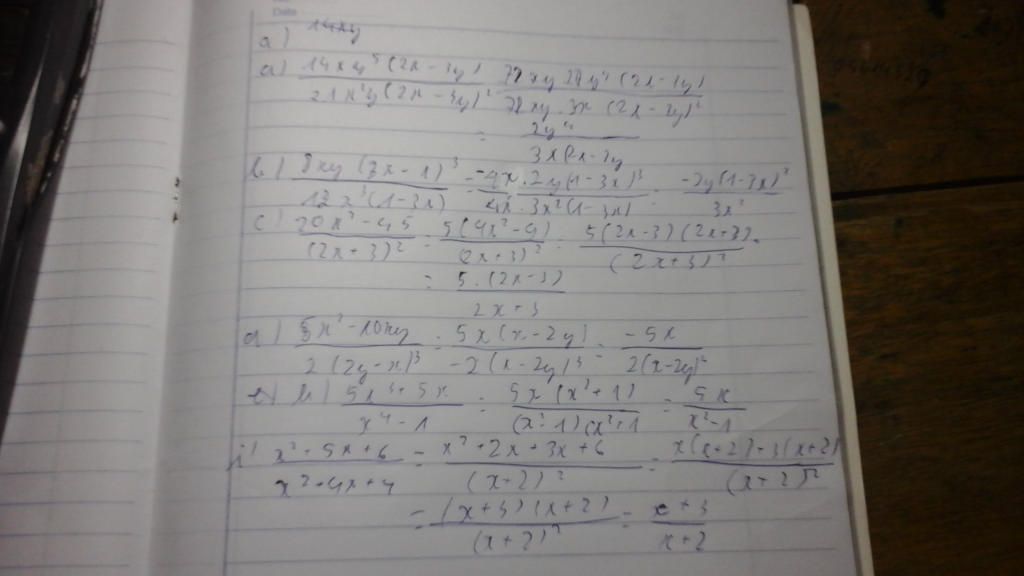 Date
a) 14xy
a) 14xy⁵(2x-3y) / 21x²y(2x-3y)² = 7xy.2y⁴(2x-3y) / 7xy.3x(2x-3y)²
= 2y⁴ / 3x(2x-3y
b) 8xy(3x-1)³ / 12x³(1-3x) = -4x.2y(1-3x)³ / 4x.3x²(1-3x) = -2y(1-3x)² / 3x²
c) 20x²-45 / (2x+3)² = 5(4x²-9) / (2x+3)² = 5(2x-3)(2x+3) / (2x+3)²
= 5.(2x-3) / 2x+3
d) 5x²-10xy / 2(2y-x)³ = 5x(x-2y) / -2(x-2y)³ = -5x / 2(x-2y)²
h) 5x³+5x / x⁴-1 = 5x(x²+1) / (x²-1)(x²+1 = 5x / x²-1
i) x²+5x+6 / x²+4x+4 = x²+2x+3x+6 / (x+2)² = x(x+2)+3(x+2) / (x+2)²
= (x+3)(x+2) / (x+2)² = x+3 / x+2